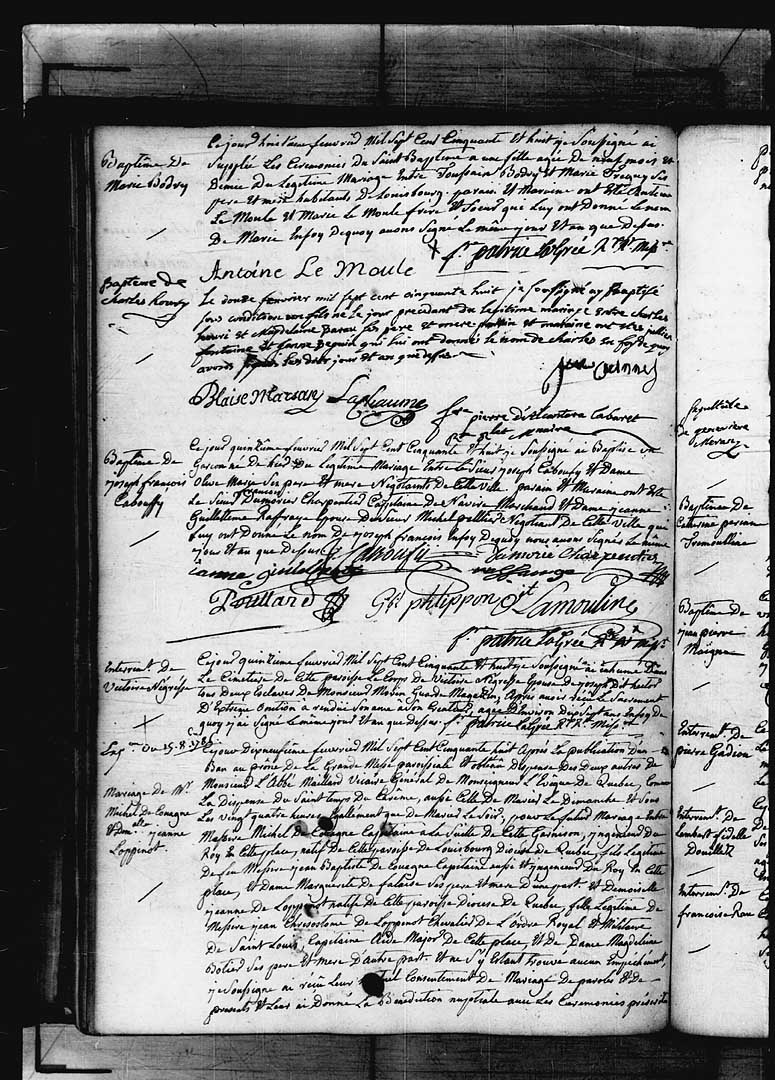 Baptême De
Marie Bodry
Ce jour huitième feuvried Mil Sept Cent Cinquante Et huit je Soussigné ai
Supplée Les Ceremonies Du Saint Baptême a une fille agée de neuf mois Et
Demie Du Legitime Mariage Entre Toussain Bodry Et Marie Les
pere Et mere habitants De Louisbourg; parain Et Maraine ont Eté Antoine
Le Moule Et Marie Le Moule frere Et Soeur qui Luy ont Donné Le nom
De Marie Enfoy Dequoy auons Signé Le même jour Et an que Dessus
f. patrice LaGrée Rt. Pt. Miss.re
Antoine Le Moule
Baptême de
Charles henry
Le douze fevrier mil sept cent cinquante huit je soussigné ay Baptisé
sous condition un fils né le jour precedant du legitime mariage entre charles
henri et Magdelaine ses pere et mere parain et maraine ont etes julien
fontaine et janne Bequin qui lui ont donné le nom de charles en foy de quoy
avons signé les dits jour et an que dessus
Blaise Marsan Lachaume
frere pierre d'alcantara Cabaret
Baptême De
joseph françois
Cabouffy
Ce jour quinzième feuvried Mil Sept Cent Cinquante Et huit je Soussigné ai Baptisé un
Garcon né de hier Du Legitime Mariage Entre Le Sieur joseph Cabouffy Et Dame
Olive Marye Ses pere Et mere Negotiants De Cette Ville parain Et Maraine ont Eté
Le Sieur françois Dumoried Charpentied Cappitaine De Navire Marchand Et Dame jeanne
Guillelleme Raffraye Epouse Du Sieur Michel pellitier Negotiant De Cette Ville qui
Luy ont Donné Le nom De joseph François Enfoy Dequoy nous auons Signés Le même
jour Et an que Dessus Cabouffy Dumorie Charpentier
janne
Pouillard Gbl philippon St Lamouline
f. patrice LaGrée Rt. Pt. Miss.
Interremt. De
Victoire Négrésse
Ce jour quinzième feuvried Mil Sept Cent Cinquante Et huit je Soussigné ai inhumé Dans
Le Cimetiere De Cette paroisse Le Corps De Victoire Négresse Epouse de joseph Dit hector
tous Deux Esclaves De Monsieur Morin Garde Magazin, Apres auoir reçu Le Sacrement
D'Extreme Onction a rendüe Son ame a Son Createur, agée D'Environ Dix Sept ans Enfoy De
quoy j'ai Signé Le même jour Et an que dessus f. patrice LaGrée Rt. Pt. Miss.re
Mariage De Mr.
Michel De Couagne
Et Damlle jeanne
Loppinot
Ce jour Dixneufieme feuvried Mil Sept Cent Cinquante huit Apres La publication D'un
Ban au prône De La Grande Messe paroissiale Et obtenu Dispense Des Deux autres de
Monsieur L'Abbé Maillard Vicaire Général De Monseigneur L'Evêque de Quebec, Comme
La Dispense Du Saint temps De Carême, aussi Celle De Marier Le Dimanche Et Sous
Les Vingt quatre heures Egallement que De Marier Le Soir, pour Le Mariage Entre
Messire Michel De Couagne Capitaine a La Suitte De Cette Garnison, jngenieur Du
Roy En Cette place, natif De Cette paroisse De Louisbourg Diocese De Quebec, fils Legitime
De feu Messire jean Baptiste De Couagne Capitaine aussi Et jngenieur Du Roy En Cette
place, Et Dame Marguerite De falaise Ses pere Et mere D'une part; Et Demoiselle
jeanne De Loppinot natif De Cette paroisse Diocese De Quebec, fille Legitime De
Messire jean Chrisostome De Loppinot Chevalier De L'Ordre Royal Et Militaire
De Saint Louis, Capitaine Aide Major De Cette place, Et De Dame Magdeleine
Ses pere Et mere D'autre part, Et ne S'y Estant trouvé aucun Empechement,
je Soussigné ai reçu Leur mutuel Consentement De Mariage De paroles De
presents Et Leur ai Donné La Benediction nuptiale avec Les Ceremonies
Sepulture
De genevieve
Baptême De
Caterine periane
Tremoulliere
Baptême De
jean pierre
Maigne
Interremt. De
pierre Gadion
Interremt. De
Lambert fidelle
Douillet
Interremt. De
francoise